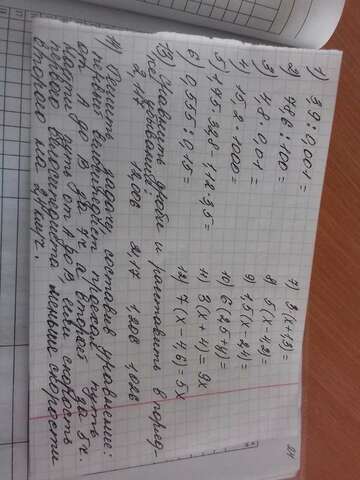 1) 39 : 0,001 =
2) 786 : 100 =
3) 4,8 · 0,01 =
4) 15,2 · 1000 =
5) 175 · 328 - 1,12 · 35 =
6) 0,555 : 0,15 =
7) 3(x+1,3)=
8) 5(x-4,2)=
9) 1,5(x-2,4)=
10) 6(25+y)=
11) 3(x+4)=9x
12) 7(x-4,6)=5x
13) Сравнить дроби и расставить в поряд-
ке убывания:
2,117 1,2006 2,17 1,208 1,026
14) Решить задачу, составив уравнение:
первый велосипедист проехал путь
от А до В за 7 ч а второй за 5ч.
Найти путь от А до В, если скорость
первого велосипедиста меньше скорости
второго на 24км/ч.